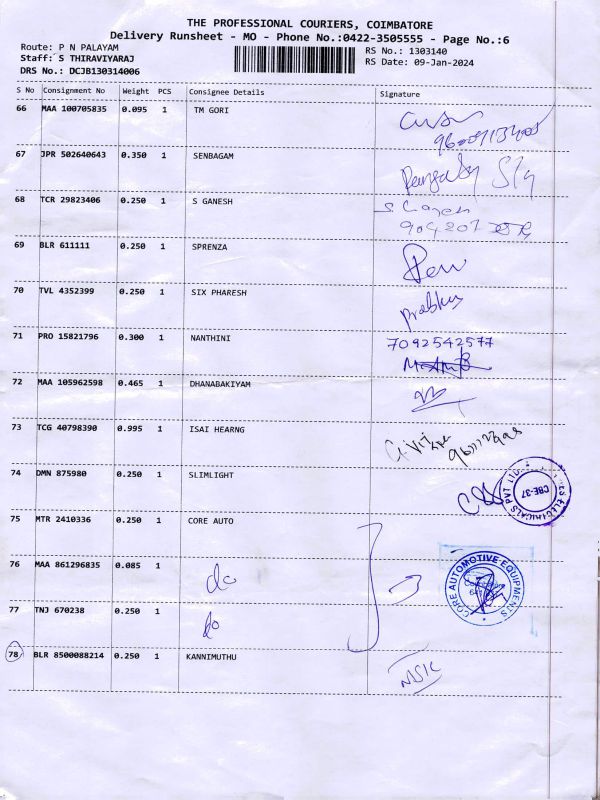 THE PROFESSIONAL COURIERS, COIMBATORE
Delivery Runsheet - MO - Phone No.:0422-3505555 - Page No.:6
Route: P N PALAYAM
Staff: S THIRAVIYARAJ
DRS No.: DCJB130314006
RS No.: 1303140
RS Date: 09-Jan-2024
S No Consignment No Weight PCS Consignee Details Signature
66 MAA 100705835 0.095 1 TM GORI
67 JPR 502640643 0.350 1 SENBAGAM
68 TCR 29823406 0.250 1 S GANESH
S. Ganesh
69 BLR 611111 0.250 1 SPRENZA
70 TVL 4352399 0.250 1 SIX PHARESH
Prabhu
71 PRO 15821796 0.300 1 NANTHINI
7092542577
72 MAA 105962598 0.465 1 DHANABAKIYAM
73 TCG 40798390 0.995 1 ISAI HEARNG
74 DMN 875980 0.250 1 SLIMLIGHT
ELECTRICALS PVT LTD
CBE-37
75 MTR 2410336 0.250 1 CORE AUTO
76 MAA 861296835 0.085 1 do
CORE AUTOMOTIVE EQUIPMENTS
77 TNJ 670238 0.250 1 do
78 BLR 8500088214 0.250 1 KANNIMUTHU